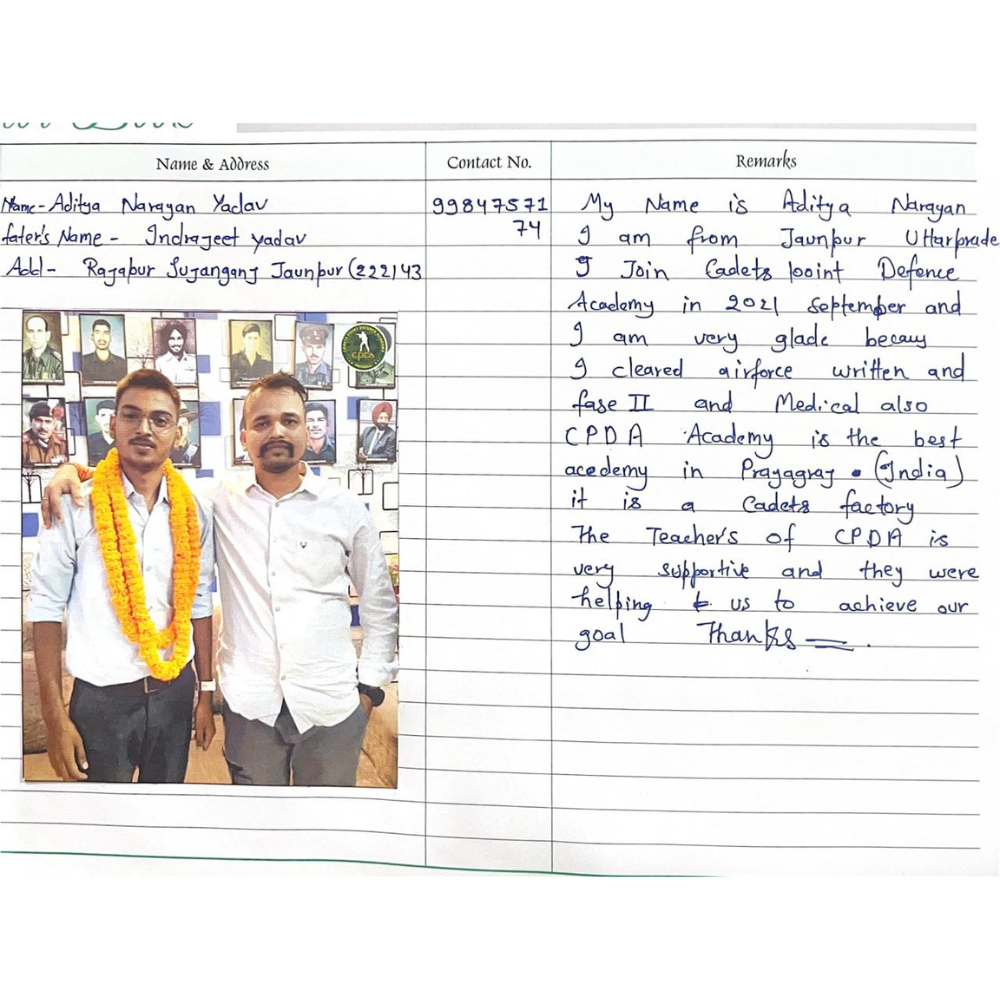 Name & Address
Contact No.
Remarks
Name - Aditya Narayan Yadav
fater's Name - Indrajeet yadav
Add - Rajapur Sujanganj Jaunpur (222143
9984757171
74
My Name is Aditya Narayan
I am from Jaunpur Uttarprade
I Join Cadets point Defence
Academy in 2021 September and
I am very glade becaus
I cleared airforce written and
fase II and Medical also
CPDA Academy is the best
acedemy in Prayagraj. (India)
it is a Cadets factory
The Teacher's of CPDA is
very supportive and they were
helping us to achieve our
goal Thanks
CPDA